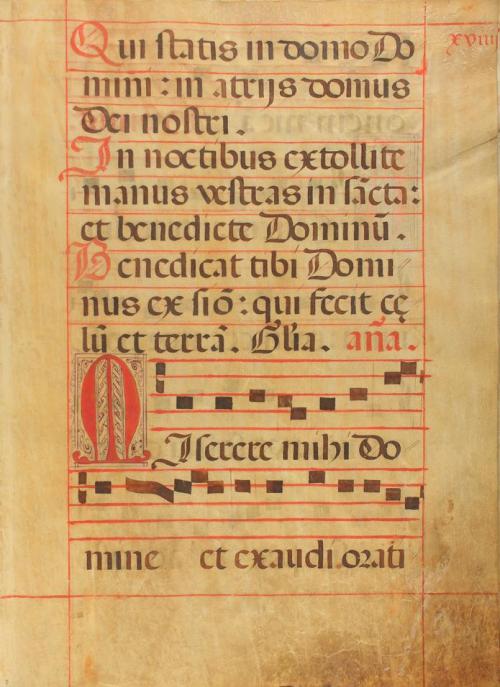 xviiij
Qui statis in domo Do
mini: in atrijs domus
Dei nostri.
In noctibus extollite
manus vestras in sãcta:
et benedicte Dominũ.
Benedicat tibi Domi
nus ex siõ: qui fecit cę
lũ et terrã. Glia. aña.
MIserere mihi Do
mine et exaudi orati